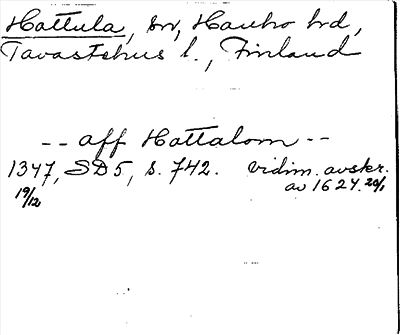 Hattula, sn, Hauho hd,
Tavastehus l., Finland
-- aff Hattalom --
1347, SD5, s. 742. vidim. avskr.
19/12 av 1624. 20/1